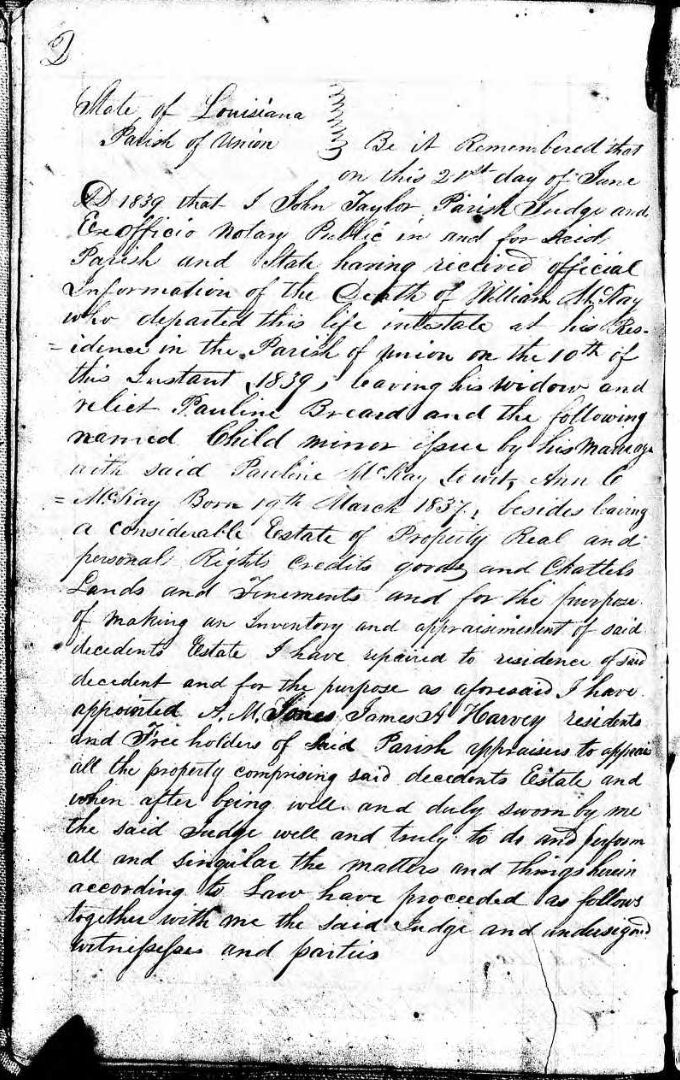 2
State of Louisiana
Parish of Union
Be it Remembered that
on this 21st day of June
AD 1839 that I John Taylor Parish Judge and
Exofficio Notary Public in and for Said
Parish and State having received official
Information of the Death of William McKay
who departed this life intestate at his Res-
=idence in the Parish of union on the 10th of
this Instant, 1839, leaving his widow and
relict Pauline Breard and the following
named Child minor issue by his Marriage
with said Pauline McKay towit, Ann C
=McKay Born 19th March 1837, besides leaving
a considerable Estate of Property Real and
personal Rights Credits goods and Chattels
Lands and Tinements and for the purpose
of making an Inventory and appraisiment of said
decedents Estate I have repaired to residence of said
decedent and for the purpose as aforesaid I have
appointed A. M. Jones James A Harvey residents
and Freeholders of Said Parish appraisers to apprais
all the property comprising said decedents Estate and
when after being well and duly sworn by me
the said Judge well and truly to do and perform
all and singular the matters and things herein
according to Law have proceeded as follows
together with me the said Judge and undersigned
witnessesses and parties